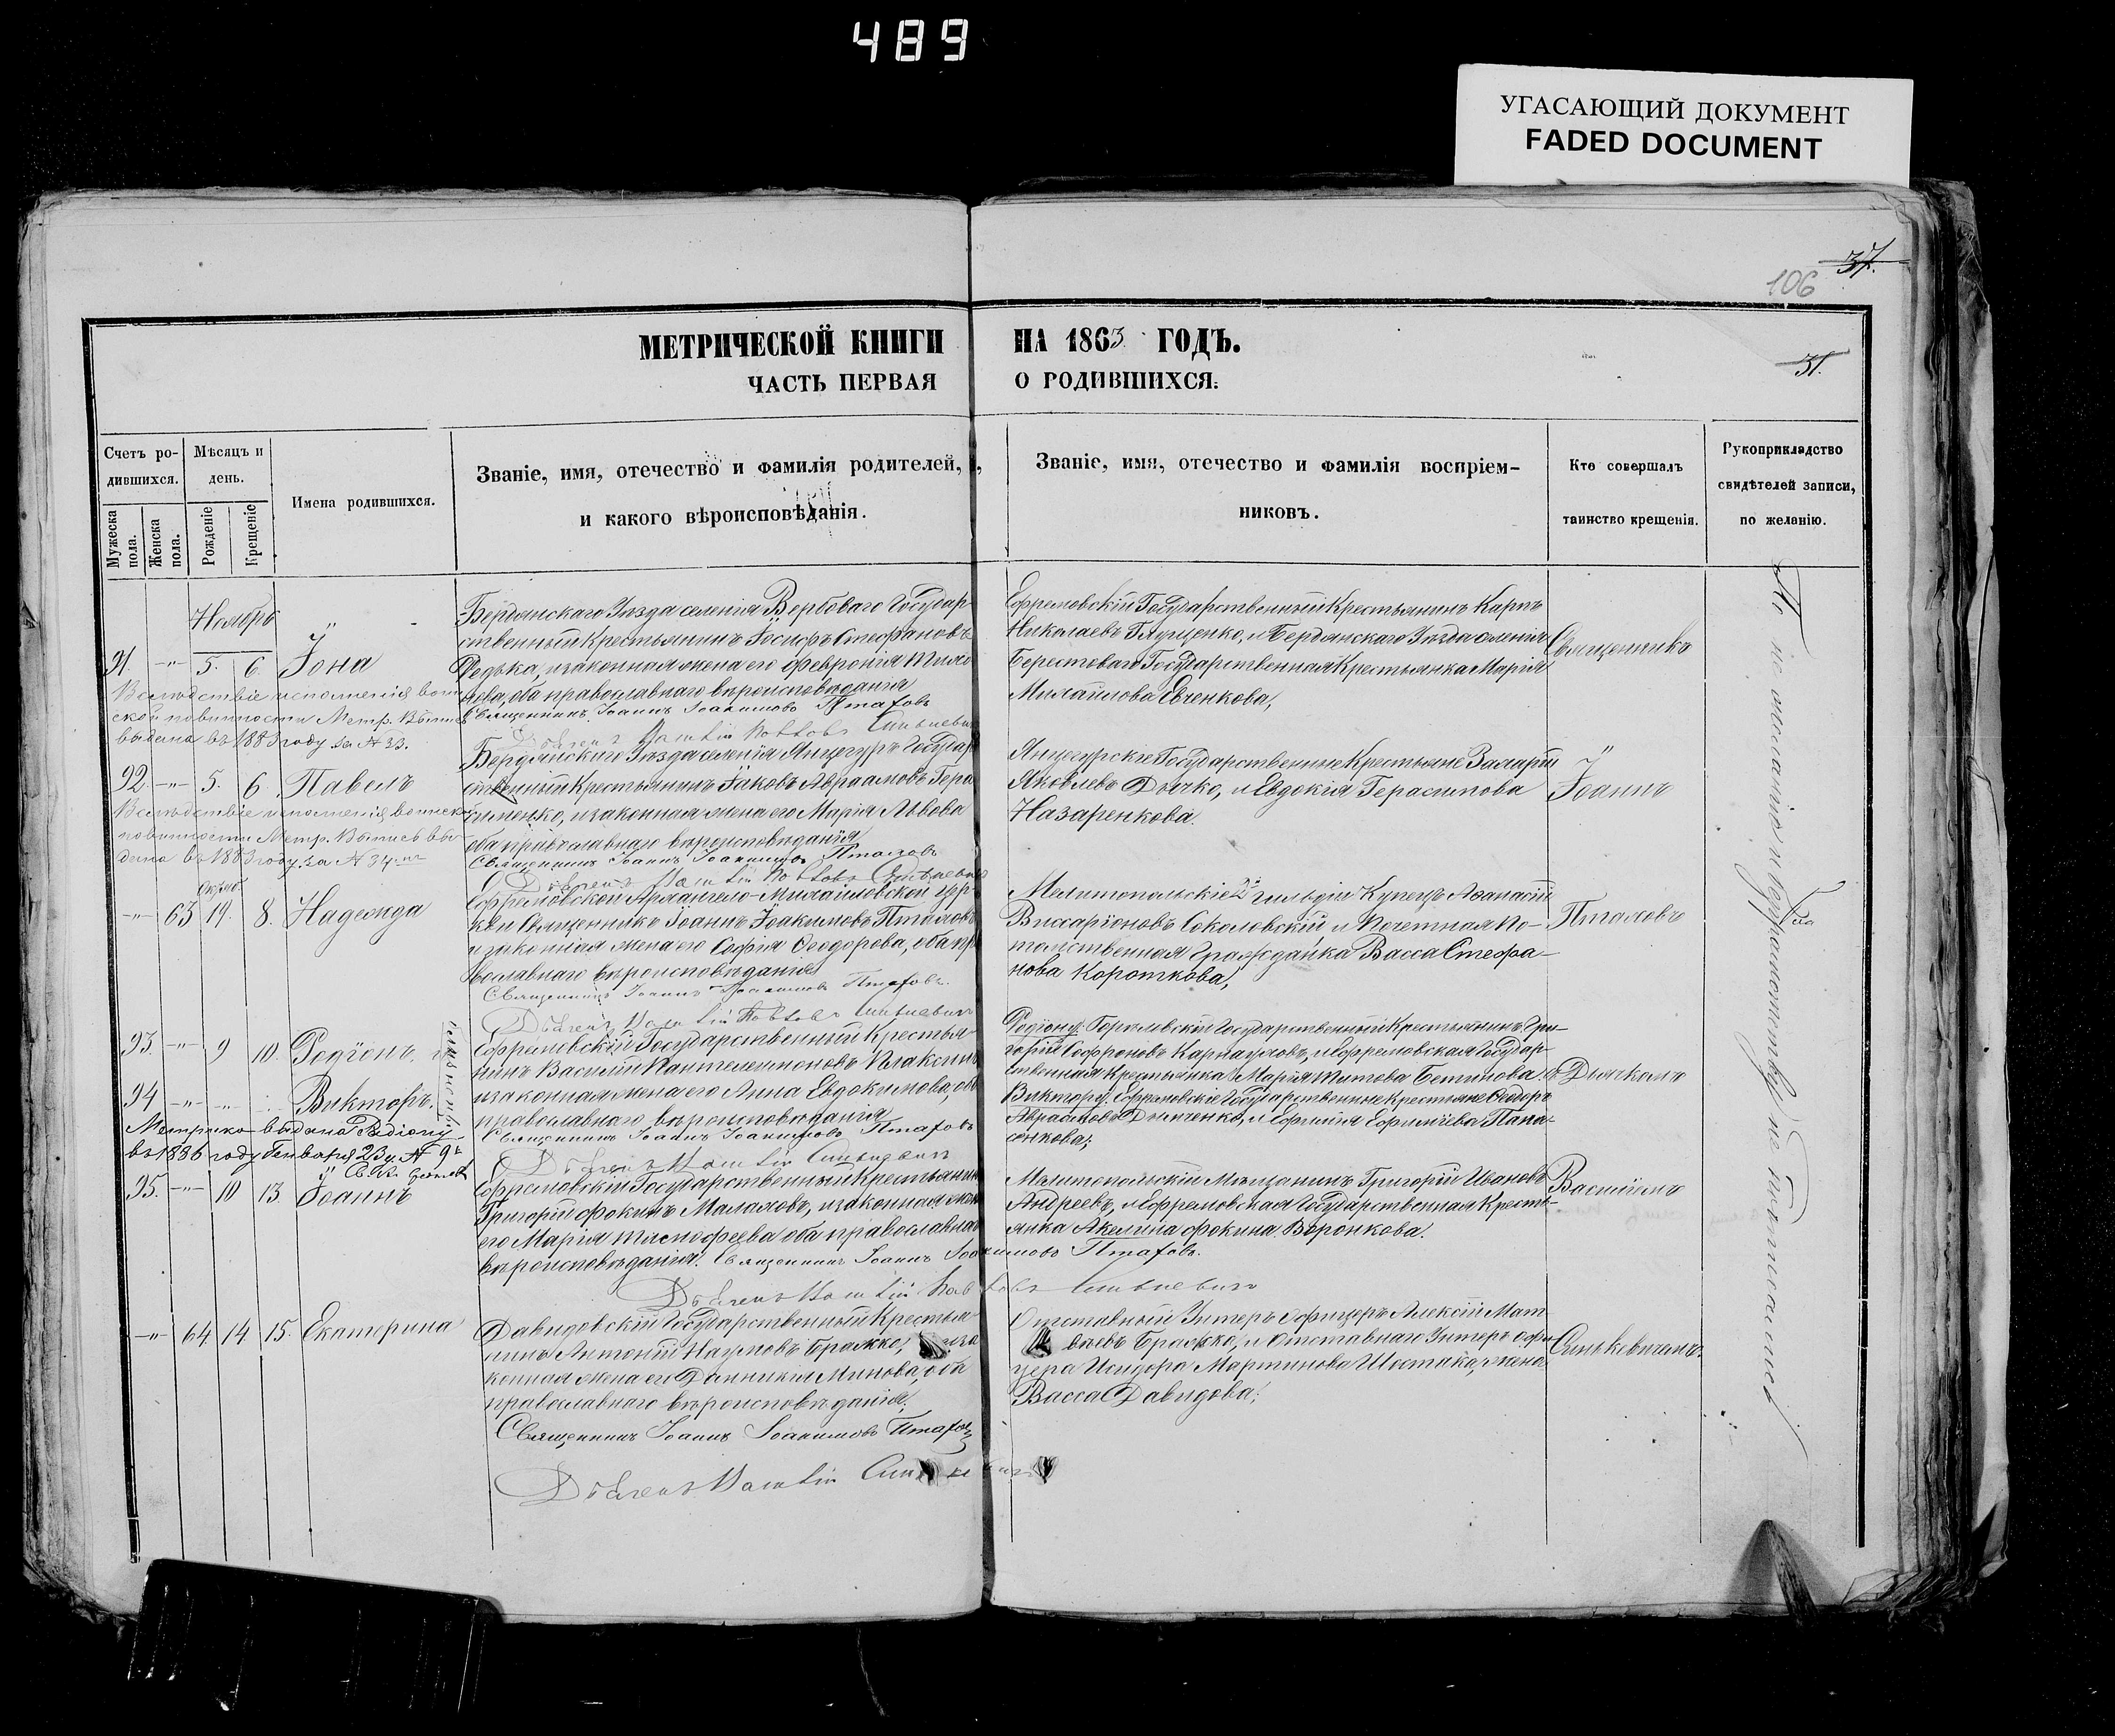 489
УГАСАЮЩИЙ ДОКУМЕНТ
FADED DOCUMENT
37.
106
МЕТРИЧЕСКОЙ КНИГИ НА 1863 ГОДЪ.
31.
ЧАСТЬ ПЕРВАЯ О РОДИВШИХСЯ.
Счетъ ро-
дившихся.
Мужеска пола.
Женска пола.
Мѣсяцъ и
день.
Рожденіе
Крещеніе
Имена родившихся.
Званіе, имя, отечество и фамилія родителей,
и какого вѣроисповѣданія.
Званіе, имя, отечество и фамилія воспріем-
никовъ.
Кто совершалъ
таинство крещенія.
Рукоприкладство
свидѣтелей записи,
по желанію.
Ноябрь
91. -"- 5. 6. Іона
Вслѣдствіе исполненія воин
ской повинности Метр. Выпись
выдана въ 1883 году за № 33.
Бердянскаго Уѣзда селенія Вербоваго Государ-
ственный Крестьянинъ Іосифъ Стефановъ
Редька, и законная жена его Февронія
оба православнаго вѣроисповѣданія
Священникъ Іоаннъ Іоакимовъ Птаховъ
Ефремовскій Государственный Крестьянинъ Карпъ
Николаевъ Глущенко, и Бердянскаго Уѣзда селенія
Берестоваго Государственная Крестьянка Марія
Михайлова Евченкова,
Священникъ
92. -"- 5. 6. Павелъ
Вслѣдствіе исполненія воинск
повинности Метр. Выпись вы-
дана въ 1883 году за № 34
Бердянскаго Уѣзда селенія Янчегуръ Государ
ственный Крестьянинъ Іаковъ Авраамовъ Гера
сименко, и законная жена его Марія Львова
оба православнаго вѣроисповѣданія
Священникъ Іоаннъ Іоакимовъ Птаховъ
Янчегурскіе Государственные Крестьяне Захарій
Яковлевъ Дьячко, и Евдокія Герасимова
Назаренкова.
Іоаннъ
Октяб.
-"- 63 19. 8. Надежда
Ефремовской Архангело-Михайловской цер-
кви Священникъ Іоаннъ Іоакимовъ Птаховъ
и законная жена его Софія Ѳеодорова, оба пра
вославнаго вѣроисповѣданія
Священникъ Іоаннъ Іоакимовъ Птаховъ.
Мелитопольскіе 2й гильдіи Купецъ Аѳанасій
Виссаріоновъ Соколовскій и Почетная По-
томственная Гражданка Васса Стефа-
нова Короткова,
Птаховъ
93. -"- 9 10. Родіонъ.
94 -"- Викторъ.
Метрика выдана Радіону
въ 1886 году Генваря 23 д. № 9
Ефремовскій Государственный Крестья-
нинъ Василій Пантелеимоновъ Плаксинъ
и законная жена его Анна Евдокимова, оба
православнаго вѣроисповѣданія
Священникъ Іоаннъ Іоакимовъ Птаховъ
Родіона: Горѣловскій Государственный Крестьянинъ Гри-
горій Софроновъ Карнауховъ, и Ефремовская Государ-
ственная Крестьянка Марія Титова
Виктора: Ефремовскіе Государственные Крестьяне Ѳеодоръ
Авраамовъ Дьяченко, и Евфимія Ефимiева Пана-
сенкова;
съ Дьячкомъ
95. -"- 10 13. Іоаннъ
Ефремовскій Государственный Крестьянинъ
Григорій Фокинъ Малаховъ, и законная жена
его Марія оба православнаго
вѣроисповѣданія. Священникъ Іоаннъ Іоакимовъ Птаховъ.
Мелитопольскій Мѣщанинъ Григорій Ивановъ
Андреевъ, и Ефремовская Государственная Кресть-
янка Акелина Фокина Воронкова.
Василіемъ
-"- 64 14 15. Екатерина
Давидовскій Государственный Крестья-
нинъ Антоній Наумовъ Бражко, и за
конная жена его Данникія Минова, оба
православнаго вѣроисповѣданія;
Священникъ Іоаннъ Іоакимовъ Птаховъ
Отставный Унтеръ Офицеръ Алексій Мат
вѣевъ Бражко, и Отставнаго Унтеръ Офи-
цера Исидора Мартинова Шостака, жена
Васса Давидова;
Синькевичемъ.